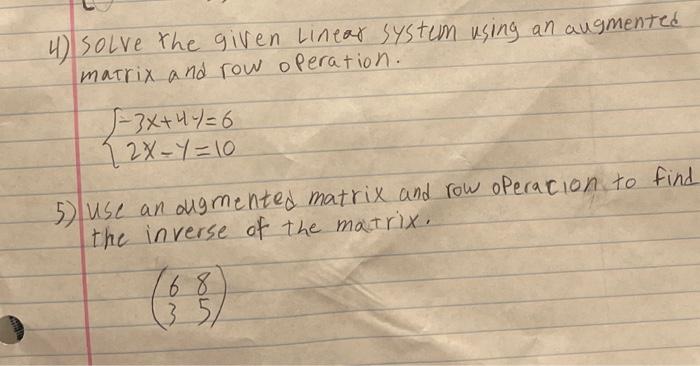 4) Solve the given Linear system using an augmented
matrix and row operation.
{-3x+4y=6
2x-y=10
5) Use an augmented matrix and row operation to find
the inverse of the matrix.
(6 8
3 5)